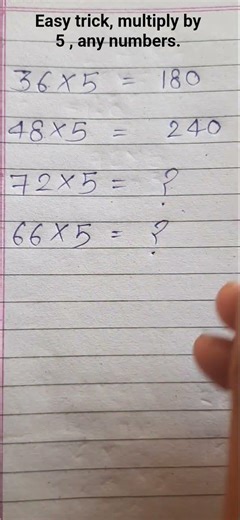 Easy trick, multiply by
5 , any numbers.
36×5 = 180
48×5 = 240
72×5 = ?
66×5 = ?